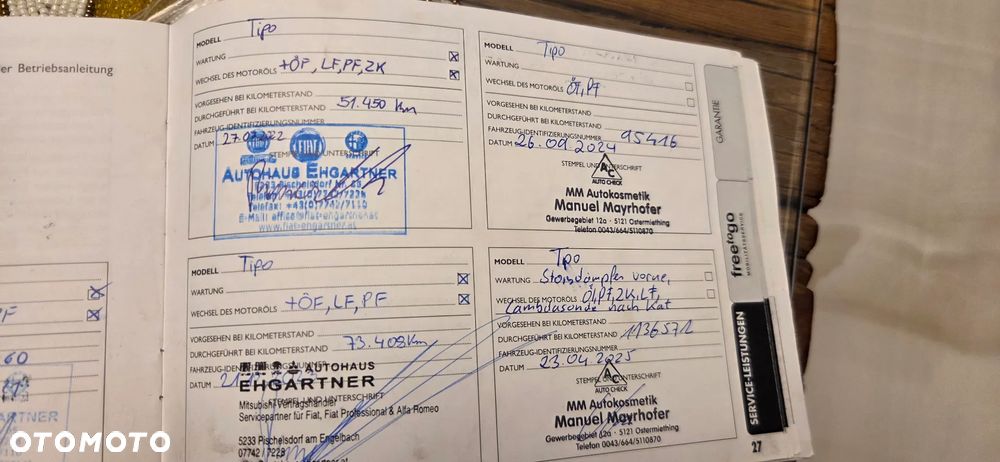 er Betriebsanleitung
MODELL Tipo
WARTUNG
WECHSEL DES MOTORÖLS +ÖF, LF, PF, ZK
VORGESEHEN BEI KILOMETERSTAND
DURCHGEFÜHRT BEI KILOMETERSTAND 51.450 Km
FAHRZEUG-IDENTIFIZIERUNGSNUMMER
DATUM
STEMPEL UND UNTERSCHRIFT
FIAT
AUTOHAUS EHGARTNER
5233 Pischelsdorf Nr.
Telefax +43(0)7742/7110
E-Mail: office@fiat-ehgartner.at
www.fiat-ehgartner.at
MODELL Tipo
WARTUNG
WECHSEL DES MOTORÖLS ÖF, PF
VORGESEHEN BEI KILOMETERSTAND
DURCHGEFÜHRT BEI KILOMETERSTAND
FAHRZEUG-IDENTIFIZIERUNGSNUMMER 95416
DATUM 26.09.2024
STEMPEL UND UNTERSCHRIFT
AC
AUTO CHECK
MM Autokosmetik
Manuel Mayrhofer
Gewerbegebiet 12a · 5121 Ostermiething
Telefon 0043/664/5110870
MODELL Tipo
WARTUNG
WECHSEL DES MOTORÖLS +ÖF, LF, PF
VORGESEHEN BEI KILOMETERSTAND
DURCHGEFÜHRT BEI KILOMETERSTAND 73.408Km
FAHRZEUG-IDENTIFIZIERUNGSNUMMER
DATUM
AUTOHAUS
EHGARTNER
STEMPEL UND UNTERSCHRIFT
Mitsubishi-Vertragshändler
Servicepartner für Fiat, Fiat Professional & Alfa Romeo
5233 Pischelsdorf am Engelbach
07742 / 7228
MODELL Tipo
WARTUNG Stossdämpfer vorne,
WECHSEL DES MOTORÖLS Öl, PF, ZK, LF,
Lambdasonde nach Kat
VORGESEHEN BEI KILOMETERSTAND
DURCHGEFÜHRT BEI KILOMETERSTAND
FAHRZEUG-IDENTIFIZIERUNGSNUMMER
DATUM 23.04.2025
STEMPEL UND UNTERSCHRIFT
AC
AUTO CHECK
MM Autokosmetik
Manuel Mayrhofer
Gewerbegebiet 12a · 5121 Ostermiething
Telefon 0043/664/5110870
GARANTIE
freetogo
MOBILITÄTSSERVICE
SERVICE-LEISTUNGEN
27
60
GARTNER
OTOMOTO